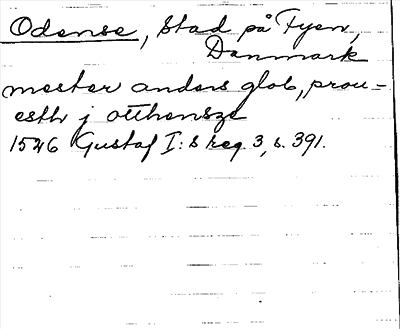 Odense, Stad på Fyen,
Danmark
mester anders glob, prou-
esth j otthensze
1526 Gustaf I:s reg. 3, s. 391.